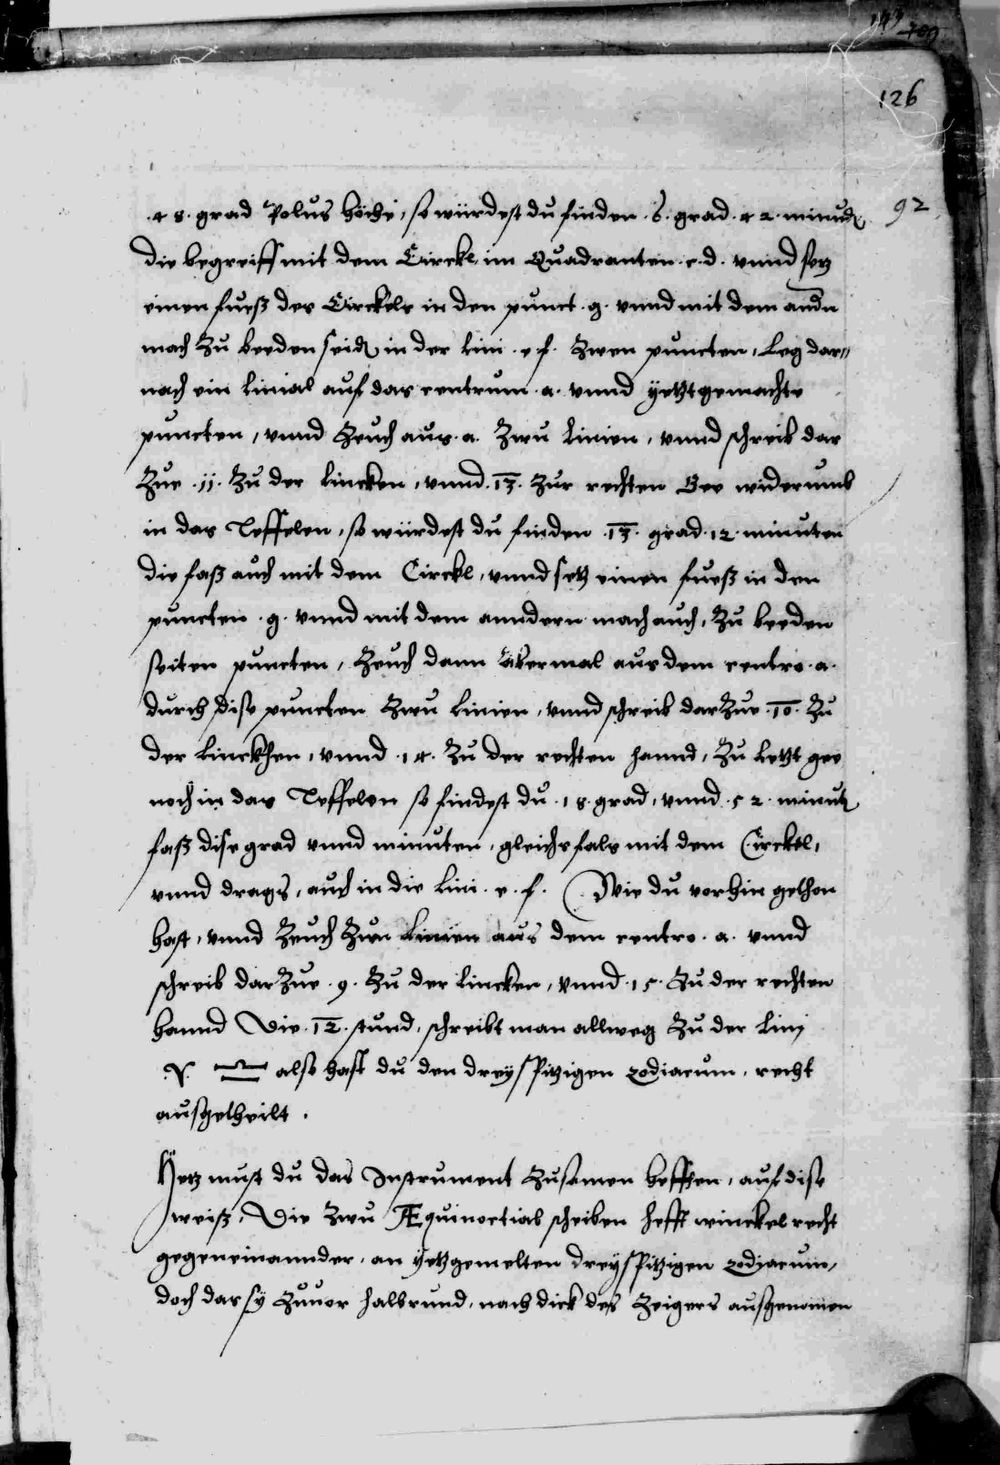 126
92
.48. grad Polus höche, so würdest du finden .6. grad .42. minud
die begreiff mit dem Circkl, im Quadranten .c.d. vnnd setz
einen fuesz des Circkels in den punct .g. vnnd mit dem andn
mach zu beeden seid in der lini .e f. zwen puncten, Leg dar„
nach ein linial auf das centrum .a. vnnd yetztgemachte
puncten, vnnd zeuch aus .a. zwu linien, vnnd schreib dar
zue .11. zu der lincken, vnnd .13. zur rechten Gee widerumb
in das Teffelen, so würdest du finden .13. grad .12. minuten
die fasz auch mit dem Circkl, vnnd setz einen fuesz in den
puncten .g. vnnd mit dem anndern mach auch, zu beeden
seiten puncten, zeuch dann abermal aus dem centro .a.
durch dise puncten zwu linien, vnnd schreib darzue .10. zu
der linckhen, vnnd .14. zu der rechten hannd, zu letzt gee
noch in das Teffelen so findest du .18. grad, vnnd .52. minut
fasz dise grad vnnd minuten, gleichsfals mit dem Circkel,
vnnd drags, auch in die lini .e.f. Wie du vorhin gethon
hast, vnnd zeuch zwu linien aus dem centro .a. vnnd
schreib darzue .9. zu der lincken, vnnd .15. zu der rechten
hannd Die .12. stund, schreibt man allweg zu der linj
♈ ♎ also hast du den dreyspitzigen zodiacum, recht
ausgetheilt.
Yetz must du das Instrument zusamen hefften, auf dise
weisz, Die zwu Æquinoctial scheiben hefft winckel recht
gegeneinannder, an yetzgemelten dreyspitzigen zodiacum,
doch das sy zuuor halbrund, nach dick des zeigers ausgenomen